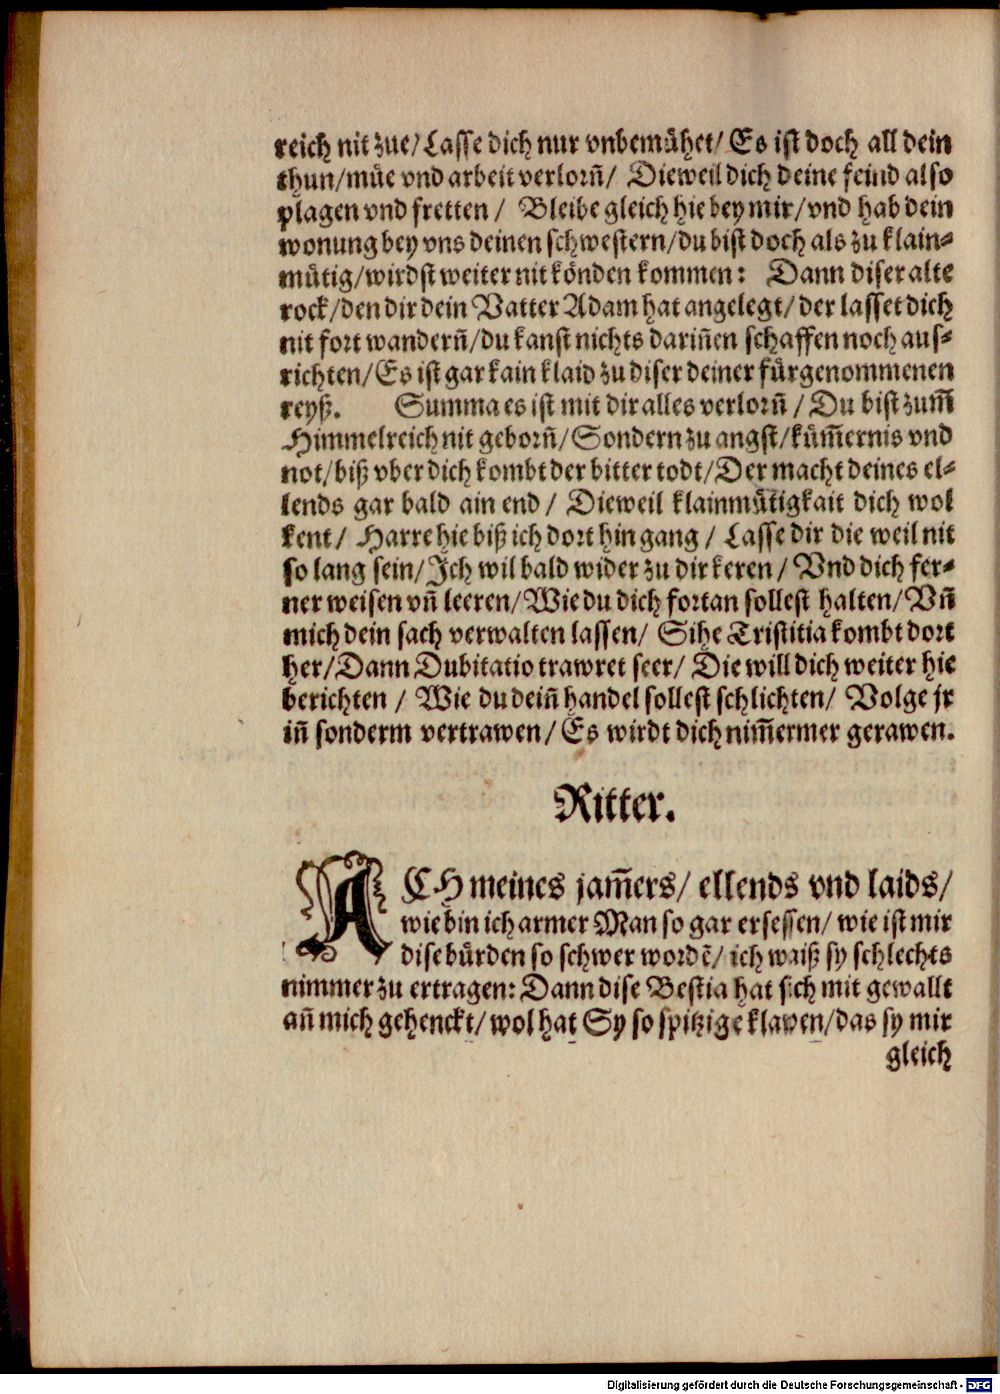 reich nit zue/ Lasse dich nur vnbemühet/ Es ist doch all dein
thun/ müe vnd arbeit verlorn̄/ Dieweil dich deine feind also
plagen vnd fretten / Bleibe gleich hie bey mir/ vnd hab dein
wonung bey vns deinen schwestern/ du bist doch als zu klain-
mütig/ wirdst weiter nit könden kommen: Dann diser alte
rock/ den dir dein Vatter Adam hat angelegt/ der lasset dich
nit fort wandern̄/ du kanst nichts darin̄en schaffen noch aus-
richten/ Es ist gar kain klaid zu diser deiner fürgenommenen
reyß. Summa es ist mit dir alles verlorn̄ / Du bist zum̄
Himmelreich nit geborn̄/ Sondern zu angst/ küm̄ernis vnd
not/ biß vber dich kombt der bitter todt/ Der macht deines el-
lends gar bald ain end / Dieweil klainmütigkait dich wol
kent / Harre hie biß ich dort hin gang / Lasse dir die weil nit
so lang sein/ Ich wil bald wider zu dir keren / Vnd dich fer-
ner weisen vn̄ leeren/ Wie du dich fortan sollest halten/ Vn̄
mich dein sach verwalten lassen/ Sihe Tristitia kombt dort
her/ Dann Dubitatio trawret seer/ Die will dich weiter hie
berichten / Wie du dein̄ handel sollest schlichten/ Volge jr
in̄ sonderm vertrawen/ Es wirdt dich nim̄ermer gerawen.
Ritter.
ACH meines jam̄ers/ ellends vnd laids/
wie bin ich armer Man so gar ersessen/ wie ist mir
dise bürden so schwer wordē/ ich waiß sy schlechts
nimmer zu ertragen: Dann dise Bestia hat sich mit gewallt
an̄ mich gehenckt/ wol hat Sy so spitzige klawen/ das sy mir
gleich
Digitalisierung gefördert durch die Deutsche Forschungsgemeinschaft - DFG